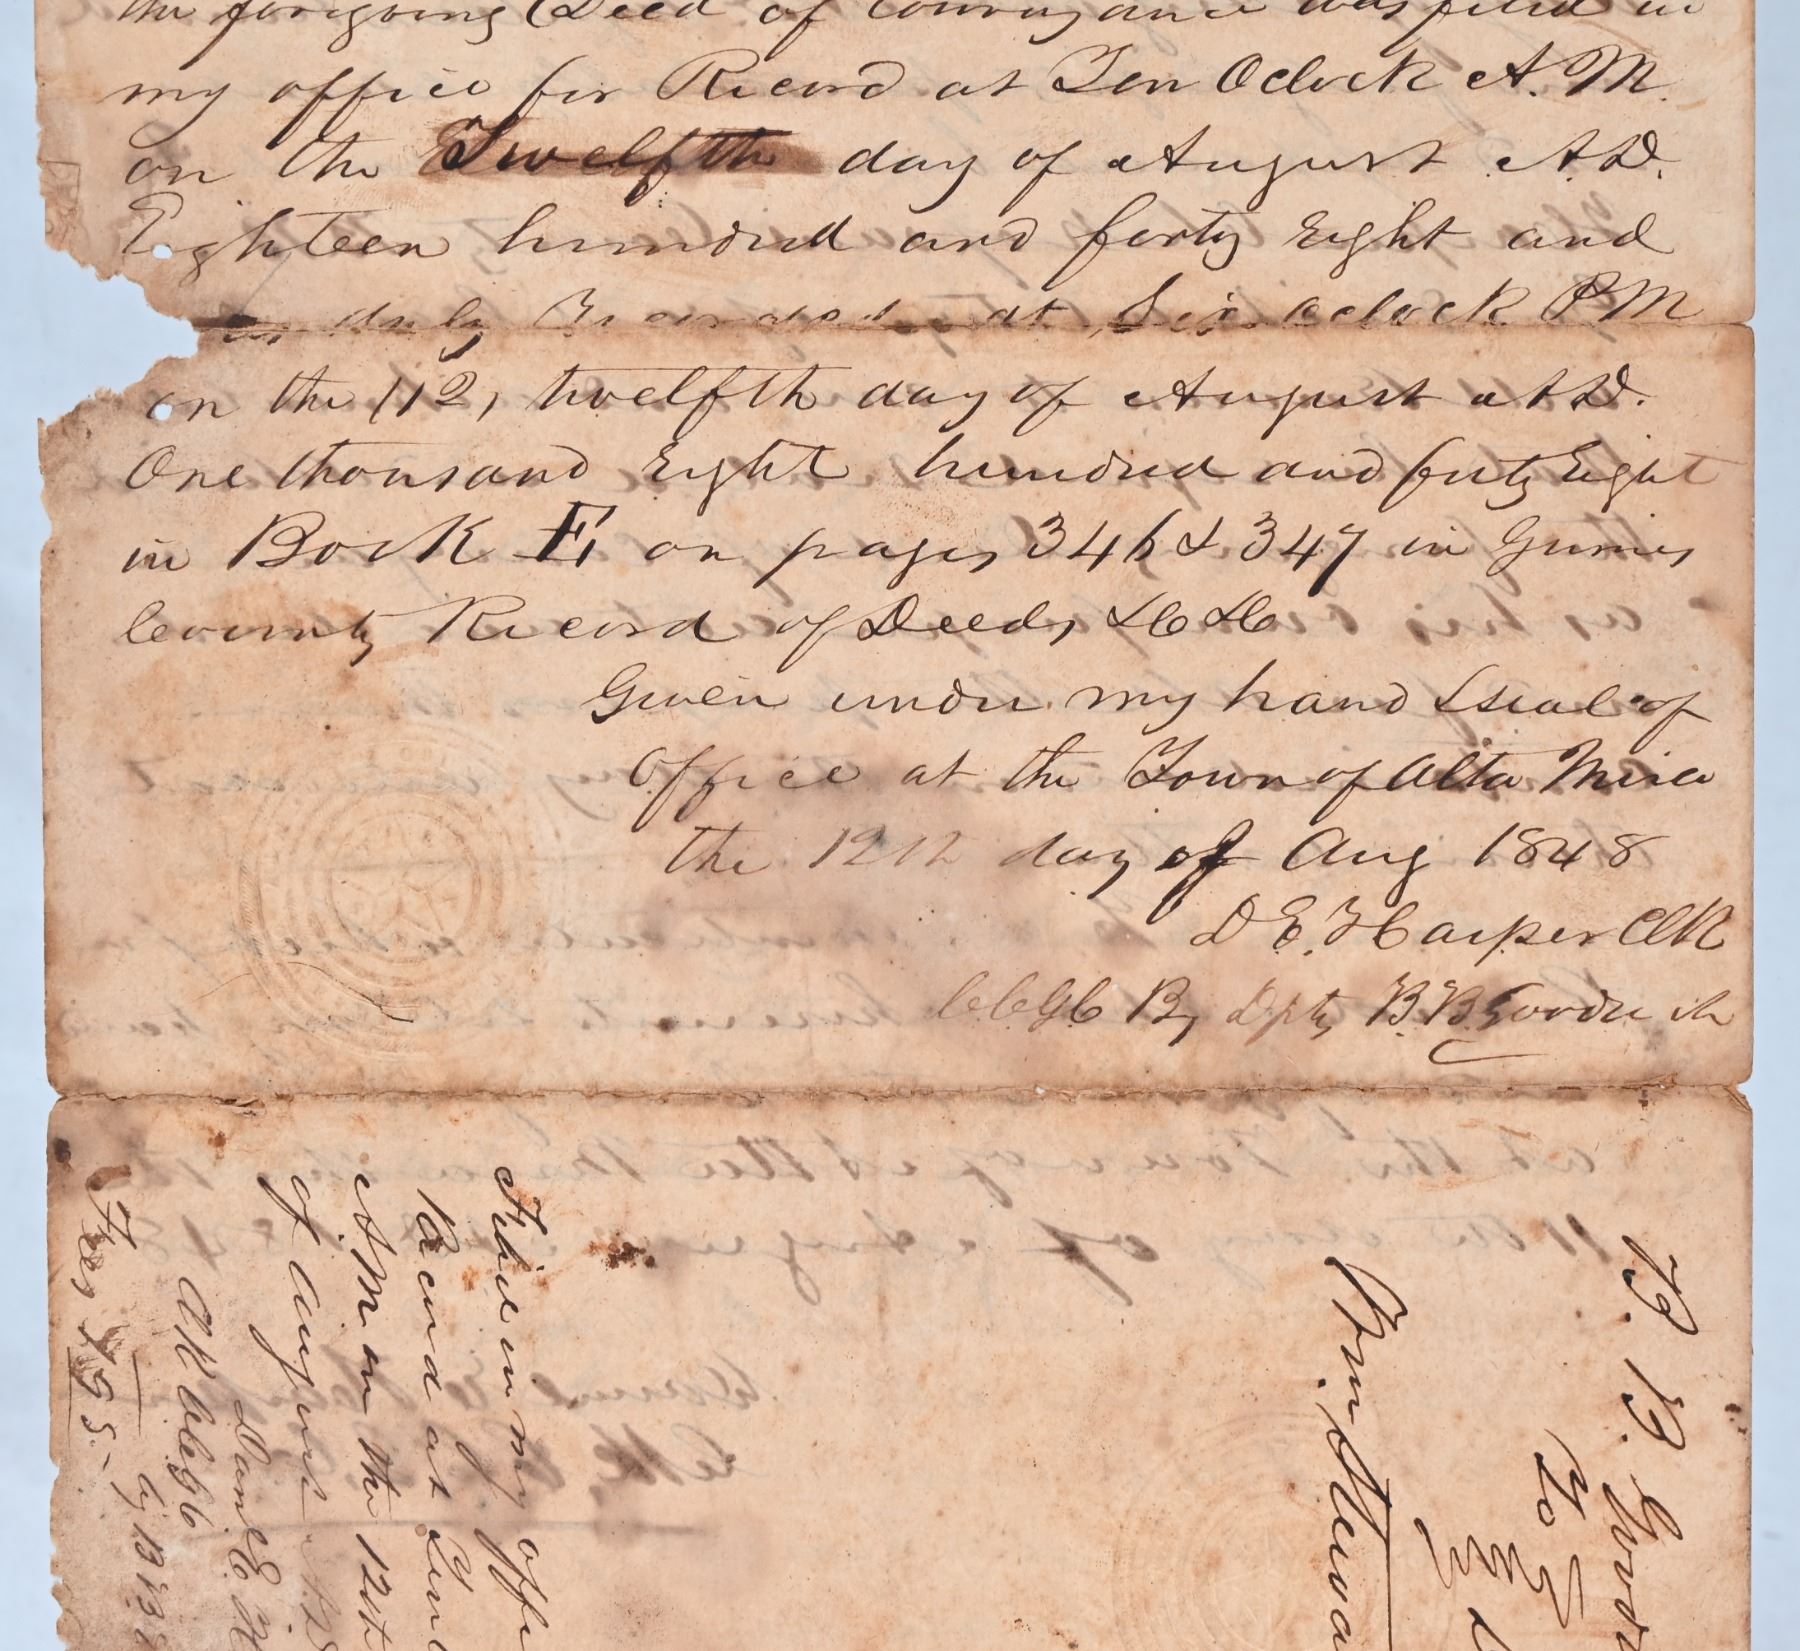 the foregoing Deed of Conveyance was filed in
my office for Record at Ten Oclock A.M.
on the Twelfth day of August A.D.
Eighteen hundred and forty Eight and
duly at Six oclock PM
on the (12) twelfth day of August A.D.
One thousand Eight hundred and forty Eight
in Book E on pages 346 & 347 in Grimes
County Record of Deeds &C &C
Given under my hand & seal of
Office at the Town of Alta Mira
the 12th day of Aug 1848
D E. Harper Clk
CCGC By Dpty B.B. Goodrich
B. B. Good
To
Wm Stewa
Filed in my offi
Record at Ten O
A M on the 12th
of August A.D
Daniel E. H
Clk CCGC
by B.B. G
Fees $